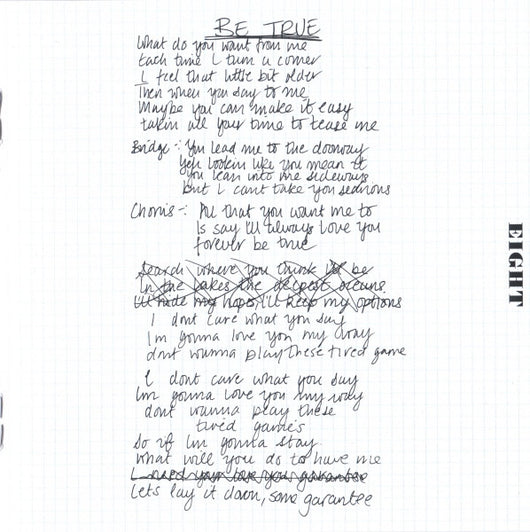 BE TRUE
What do you want from me
Each time I turn a corner
I feel that little bit older
Then when you say to me
Maybe you can make it easy
takin all your time to tease me
Bridge -: You lead me to the doorway
You lookin like you mean it
You lean into me sideways
but I cant take you searious
Chorus -: All that you want me to
Is say I'll always love you
forever be true
Search where you think I'll be
In the lakes the deepest oceans
I'll hide my hopes, I'll keep my options
I dont care what you say
Im gonna love you my way
dont wanna play these tired game
I dont care what you say
Im gonna love you my way
dont wanna play these
tired games
So if Im gonna stay
what will you do to have me
I need your love you garantee
Lets lay it down, some garantee
EIGHT